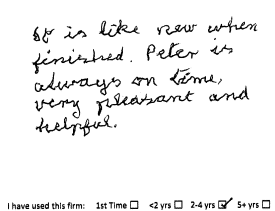 It is like new when
finished. Peter is
always on time,
very pleasant and
helpful.
I have used this firm: 1st Time ☐ <2 yrs ☐ 2-4 yrs ☑ 5+ yrs ☐